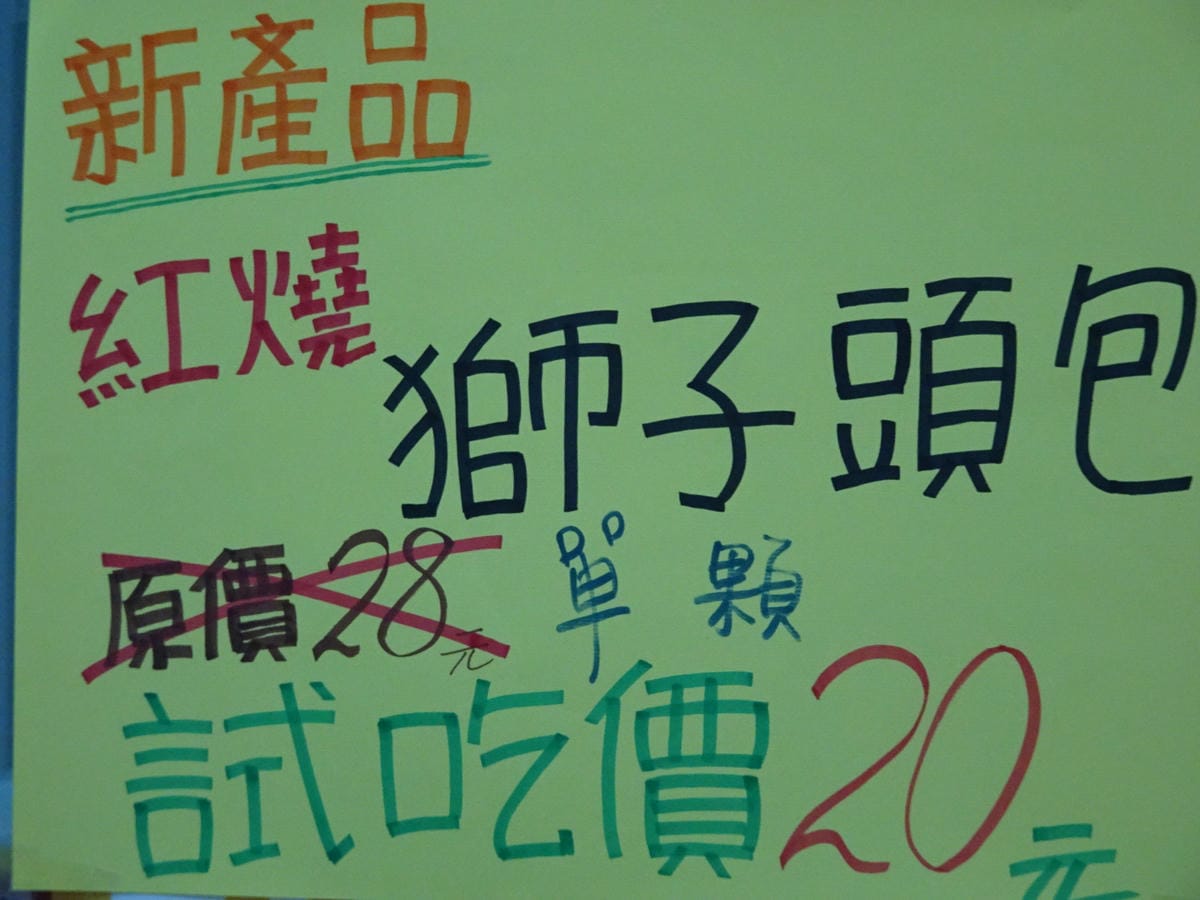 新產品
紅燒獅子頭包
原價28元 單顆
試吃價20元